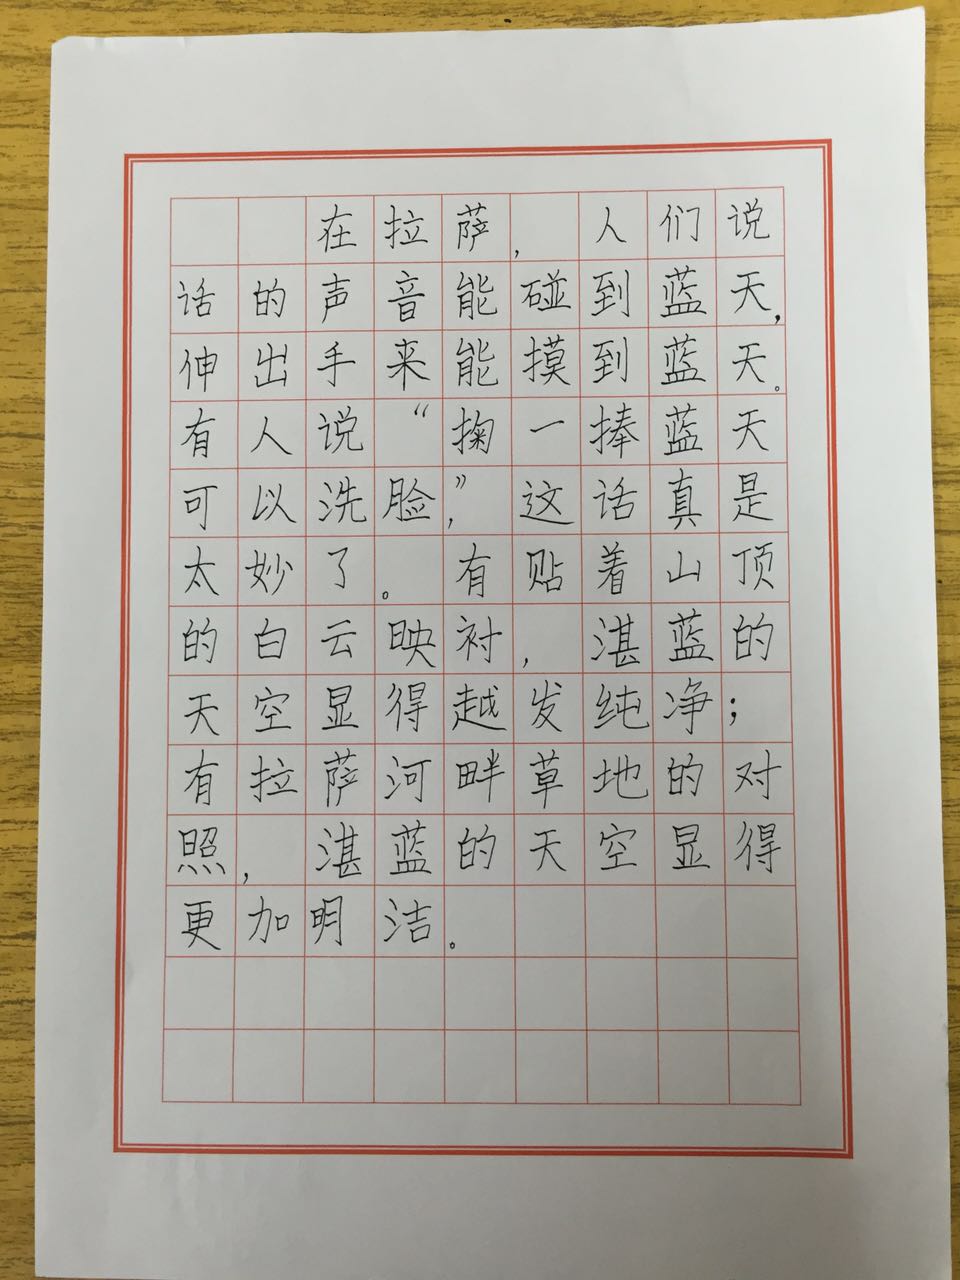 在拉萨，人们说
话的声音能碰到蓝天，
伸出手来能摸到蓝天。
有人说“掬一捧蓝天
可以洗脸，”这话真是
太妙了。有贴着山顶
的白云映衬，湛蓝的
天空显得越发纯净；
有拉萨河畔草地的对
照，湛蓝的天空显得
更加明洁。